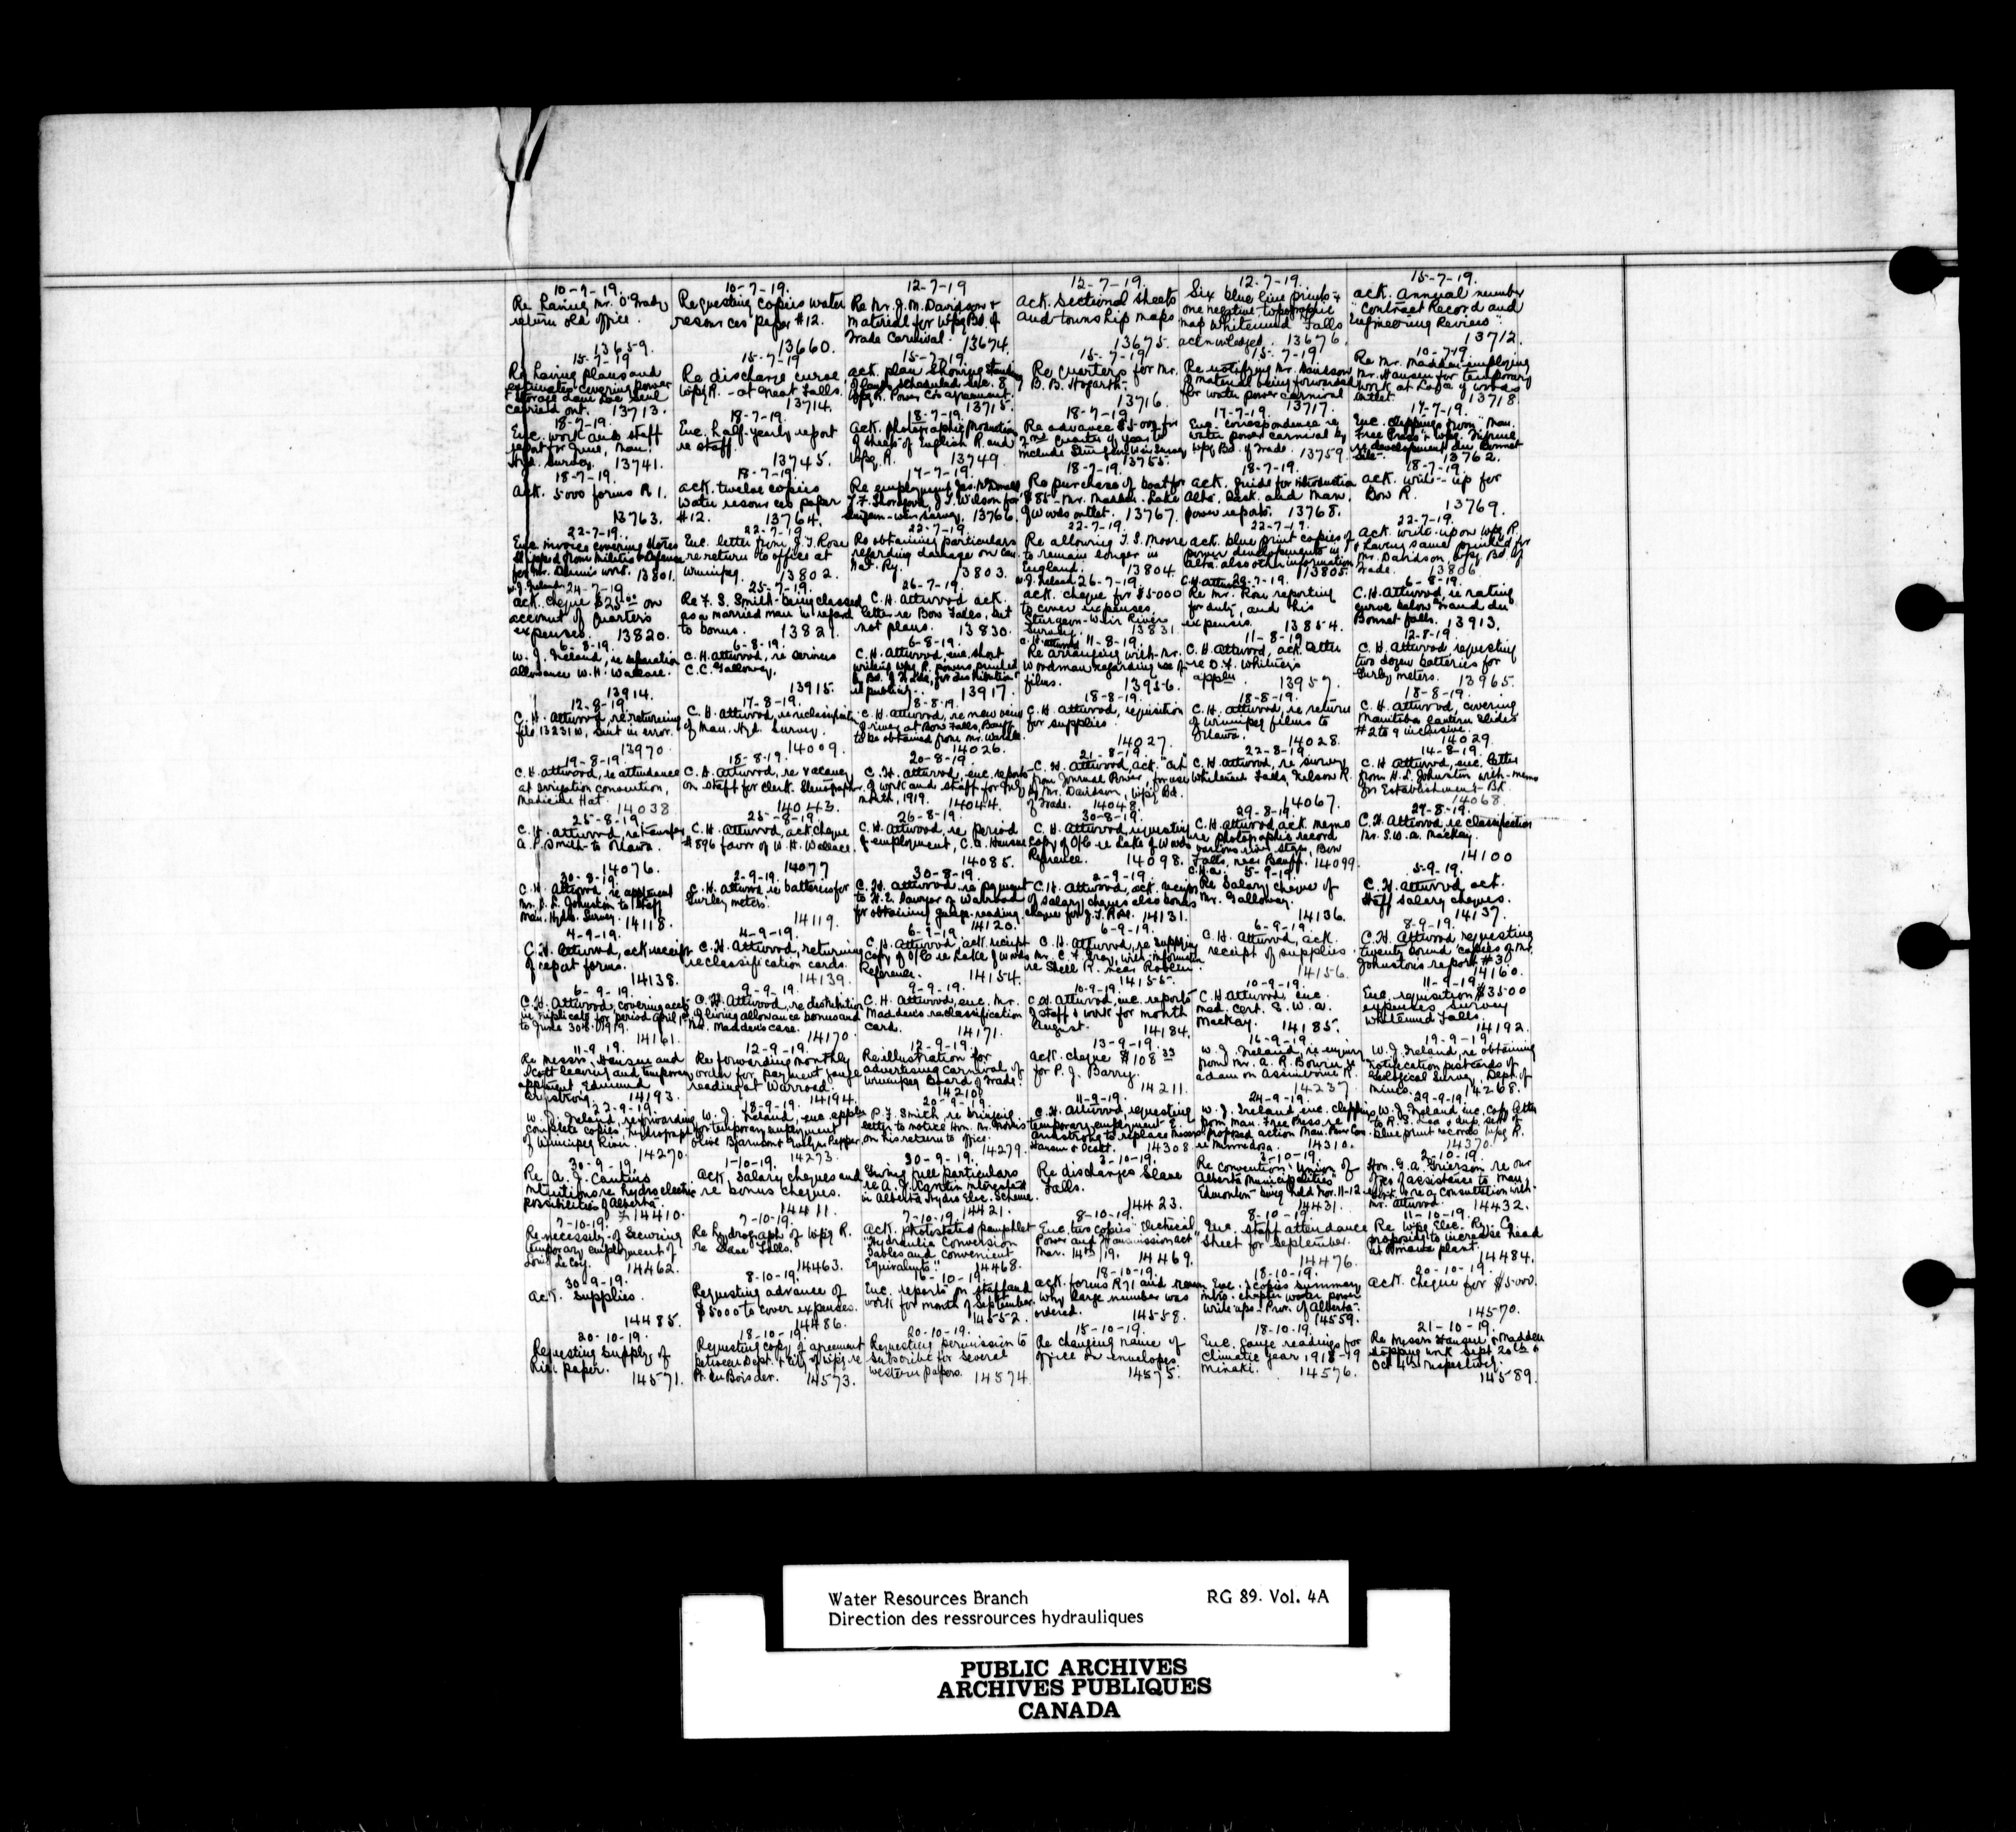 10-7-19.
Re having Mr. O'Grady
return old office.
13659.
10-7-19.
Requesting copies water
resources paper #12.
13660.
12-7-19
Re Mr. J. M. Davidson +
material for Wpg Bd. of
Trade Carnival.
13674.
12-7-19.
Ack. sectional sheets
and township maps
13675.
12-7-19.
Six blue line prints +
one negative, topographic
map Whitemud Falls
acknowledged. 13676.
15-7-19.
Ack. Annual number
"Contract Record and
Engineering Review".
13712.
15-7-19
Re having plans and
estimates covering power
+ storage dam Lac Seul
carried out. 13713.
15-7-19
Re discharge curve
Wpg R. - at Great Falls.
13714.
15-7-19.
Ack. plan showing
of lands scheduled sec. 8
Wpg R. Power Co's agreement.
13715.
15-7-19.
Re quarters for Mr.
B. B. Hogarth.
13716.
15-7-19.
Re notifying Mr. Davidson
of material being forwarded
for water power carnival
13717.
10-7-19.
Re Mr. Madden employing
Mr. Hansen for temporary
work at Lake of Woods
outlet. 13718.
18-7-19.
Enc. work and staff
report for June, Man.
Hyd. Survey. 13741.
18-7-19.
Enc. half-yearly report
re staff.
13745.
18-7-19.
Ack. photographic production
of sheep of English R. and
Wpg. R. 13749.
18-7-19
Re advance $5000 for
2nd quarter of year to
include Sturgeon Weir Survey
13755.
17-7-19.
Enc. correspondence re
water power carnival by
Wpg Bd. of Trade. 13759
17-7-19.
Enc. clippings from "Man.
Free Press" + Wpg. Tribune
re development du Bonnet
site. 13762.
18-7-19.
Ack. 5000 forms R 1.
13763.
18-7-19.
Ack. twelve copies
water resources paper
#12. 13764.
17-7-19.
Re employment Jas. McDonald
J. Wilson for
Sturgeon-Weir survey. 13766.
18-7-19.
Re purchase of boat for
$85 - Mr. Madden - Lake
of Woods outlet. 13767.
18-7-19.
Ack. guide for introduction
Alta. Sask. and Man.
power reports. 13768.
18-7-19.
Ack. write-up for
Bow R.
13769.
22-7-19.
Enc. invoices covering stores
shipped from Militia + Defence
for Mr. Dennis work. 13801.
22-7-19
Enc. letter from J. T. Rose
re return to office at
Winnipeg. 13802.
22-7-19
Re obtaining particulars
regarding damage on Can.
Nat. Ry. 13803.
22-7-19.
Re allowing T. S. Moore
to remain longer in
England. 13804.
22-7-19.
Ack. blue print copies of
power developments in
Alta. also other information
13805.
22-7-19
Ack. write-up on Wpg R.
+ having same printed for
Mr. Davidson Wpg Bd. of
Trade. 13806
W. J. Ireland 24-7-19.
Ack. cheque $25.00 on
account of quarters
expenses. 13820.
25-7-19.
Re F. S. Smith being classed
as a married man in regard
to bonus. 13821.
26-7-19.
C. H. Attwood ack.
letter re Bow Falls, but
not plans. 13830.
W. J. Ireland 26-7-19.
Ack. cheque for $5000
to cover expenses,
Sturgeon-Weir River
Survey. 13831
C. H. Attwood 29-7-19.
Re Mr. Rose reporting
for duty, and his
expenses. 13854.
6-8-19.
C. H. Attwood, re rating
curve below Grand du
Bonnet falls. 13913.
6-8-19.
W. J. Ireland, re separation
allowance W. H. Wallace.
13914.
6-8-19.
C. H. Attwood, re services
C. C. Galloway.
13915.
6-8-19.
C. H. Attwood, enc. short
write-up Wpg R. powers, printed
by Bd. of Trade, for distribution
+ publicity. 13917.
C. H. Attwood 11-8-19.
Re arranging with Mr.
Woodman regarding use of
films. 13956.
11-8-19.
C. H. Attwood, ack. letter
re O. F. Whitney's
appln. 13957.
12-8-19.
C. H. Attwood requesting
two dozen batteries for
Gurley meters. 13965.
12-8-19
C. H. Attwood, re returning
file 13231W, sent in error.
13970.
17-8-19.
C. H. Attwood, re reclassification
of Man. Hyd. Survey.
14009.
18-8-19.
C. H. Attwood, re new being
of river at Bow Falls, Banff
to be obtained from Mr. Wardle.
14026.
18-8-19.
C. H. Attwood, requisition
for supplies
14027.
18-8-19.
C. H. Attwood, re return
of Winnipeg films to
Ottawa. 14028.
18-8-19.
C. H. Attwood, covering
Manitoba lantern slides
#2 to 9 inclusive.
14029.
19-8-19.
C. H. Attwood, re attendance
at irrigation convention,
Medicine Hat.
14038
18-8-19.
C. H. Attwood, re vacancy
on staff for clerk. Stenographer.
14043.
20-8-19.
C. H. Attwood, enc. reports
of work and staff for July
month, 1919. 14044.
21-8-19.
C. H. Attwood, ack. "Art
from Journal Power, for use
by Mr. Davidson, Wpg Bd.
of Trade. 14048.
22-8-19.
C. H. Attwood, re survey
Whitemud Falls, Nelson R.
14067.
14-8-19.
C. H. Attwood, enc. letter
from H. L. Johnston with memo
for Establishment Br.
14068.
25-8-19.
C. H. Attwood, re transfer
A. P. Smith to Ottawa.
14076.
25-8-19.
C. H. Attwood, ack. cheque
#896 favor of W. H. Wallace.
14077
26-8-19.
C. H. Attwood, re period
of employment, C. A. Hansen
14085.
30-8-19.
C. H. Attwood requesting
copy of O/C re Lake of Woods
Reference. 14098.
29-8-19.
C. H. Attwood ack. memo
re photographic record
various river stages, Bow
Falls, near Banff. 14099.
27-8-19.
C. H. Attwood re classification
Mr. S. W. A. Mackay.
14100
30-8-19.
C. H. Attwood, re appointment
Mr. J. L. Johnston to staff
Man. Hydro. Survey. 14118.
2-9-19.
C. H. Attwood re batteries for
Gurley meters.
14119.
30-8-19.
C. H. Attwood re payment
to H. E. Sawyer of Warroad
for obtaining gauge-reading.
14120.
2-9-19.
C. H. Attwood, ack. receipt
of salary cheques also bonus
cheque for J. T. Rose. 14131.
C. H. A. 5-9-19.
Re salary cheque of
Mr. Galloway.
14136.
5-9-19.
C. H. Attwood ack.
staff salary cheques.
14137.
4-9-19.
C. H. Attwood, ack receipt
of report forms.
14138.
4-9-19.
C. H. Attwood, returning
reclassification cards.
14139.
6-9-19.
C. H. Attwood ack. receipt
copy of O/C re Lake of Woods
Reference. 14154.
6-9-19.
C. H. Attwood, re supplying
Mr. C. F. Gray, with information
re Shell R. near Roblin.
14155.
6-9-19.
C. H. Attwood, ack.
receipt of supplies.
14156.
8-9-19.
C. H. Attwood requesting
twenty bound copies of Mr.
Johnston's report #30
14160.
6-9-19.
C. H. Attwood covering accts
in triplicate for period April 1st
to June 30th 1919.
14161.
9-9-19.
C. H. Attwood, re distribution
of living allowance bonus and
Mr. Madden's case.
14170.
9-9-19.
C. H. Attwood, enc. Mr.
Madden's reclassification
card. 14171.
10-9-19.
C. H. Attwood, enc. reports
of staff + work for month
August. 14184.
10-9-19.
C. H. Attwood, enc.
med. cert. S. W. A.
Mackay. 14185.
11-9-19.
Enc. requisition $3500
expenses survey
Whitemud Falls.
14192.
11-9-19.
Re Messrs. Hansen and
Scott leaving and temporary
appointment Edmund
Armstrong. 14193.
12-9-19.
Re forwarding monthly
order for payment gauge
reading at Warroad.
14194.
12-9-19.
Re illustration for
advertising carnival of
Winnipeg Board of Trade.
14210.
13-9-19.
Ack. cheque $108.33
for P. J. Barry.
14211.
16-9-19.
W. J. Ireland, re enquiry
from Mr. A. R. Bowen re
a dam on Assiniboine R.
14237.
19-9-19
W. J. Ireland, re obtaining
notification postcards of
Geological Survey, Dept. of
Mines. 14268.
22-9-19.
W. J. Ireland, re forwarding
complete copies hydrograph
of Winnipeg River.
14270.
18-9-19.
W. J. Ireland, enc. appln
for temporary employment
Olive Bjarnason + Gladys Pepper
14273.
20-9-19.
P. F. Smith re bringing
letter to notice Hon. Mr. Norris
on his return to office.
14279.
11-9-19.
C. H. Attwood requesting
temporary employment E.
Armstrong to replace Messrs
Hansen + Scott. 14308.
24-9-19.
W. J. Ireland enc. clipping
from Man. Free Press re
proposed action Man. Power Com.
re Minnedosa. 14310.
29-9-19.
W. J. Ireland enc. copy letter
to R. S. Lea + dup. set of
blue print records Wpg R.
14370.
30-9-19.
Re A. J. Cantin's
intentions re hydro electric
possibilities of Alberta.
14410.
1-10-19.
Ack. salary cheques and
re bonus cheques.
14411.
30-9-19.
Giving full particulars
re A. J. Cantin interested
in Alberta Hydro Elec. Scheme.
14421.
3-10-19.
Re discharges Slave
Falls.
14423.
3-10-19.
Re convention "Union of
Alberta Municipalities"
Edmonton being held Nov. 11-12.
14431.
2-10-19.
Hon. G. A. Grierson re our
offer of assistance to Man.
Govt. + re a consultation with
Mr. Attwood. 14432.
7-10-19.
Re necessity of securing
temporary employment of
Louis Le Coy. 14462.
7-10-19.
Re hydrograph of Wpg R.
re Slave Falls.
14463.
7-10-19.
Ack. photostated pamphlet
"Hydraulic Conversion
Tables and convenient
Equivalents." 14468.
8-10-19.
Enc. two copies "Electrical
Power and Transmission Act"
Mar. 14th/19. 14469.
8-10-19.
Enc. staff attendance
sheet for September.
14476.
11-10-19.
Re Wpg Elec. Ry. Co.
proposing to increase head
at Pinawa plant.
14484.
30-9-19.
Ack. supplies.
14485.
8-10-19.
Requesting advance of
$5000 to cover expenses.
14486.
16-10-19.
Enc. reports on staff and
work for month of September.
14552.
18-10-19.
Ack. forms R71 and reason
why large number was
ordered. 14558.
18-10-19.
Enc. 2 copies summary
intro. chapter water power
write-ups - Prov. of Alberta.
14559.
20-10-19.
Ack. cheque for $5000.
14570.
20-10-19.
Requesting supply of
paper.
14571.
18-10-19.
Requesting copy of agreement
between Dept. + City of Wpg re
Pt. du Bois dev. 14573.
20-10-19.
Requesting permission to
subscribe for several
western papers. 14574.
18-10-19.
Re changing name of
office on envelopes.
14575.
18-10-19.
Enc. gauge readings for
climatic year 1918-19
Minaki. 14576.
21-10-19.
Re Messrs Hansen + Madden
stopping work Sept 20th +
Oct 4th respectively.
14589.
Water Resources Branch RG 89. Vol. 4A
Direction des ressrources hydrauliques
PUBLIC ARCHIVES
ARCHIVES PUBLIQUES
CANADA